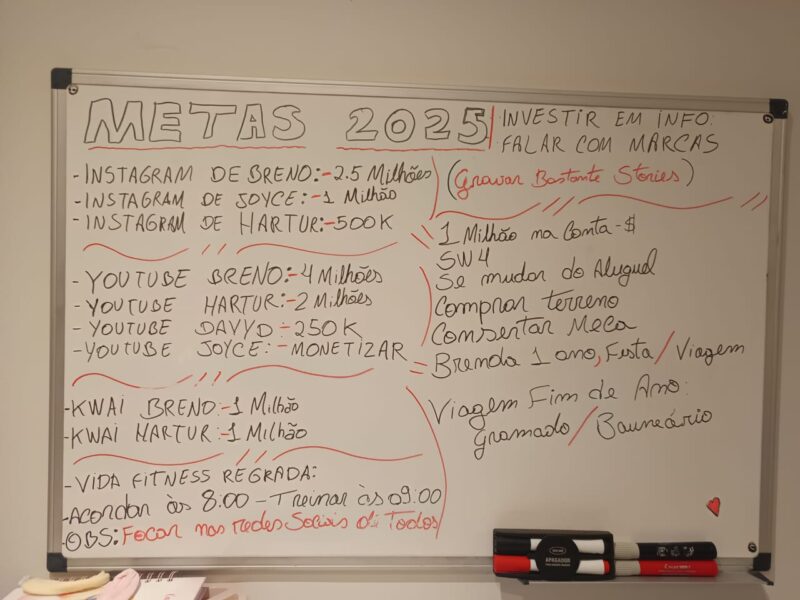 METAS 2025
- INSTAGRAM DE BRENO:-2.5 Milhões
- INSTAGRAM DE JOYCE:-1 Milhão
- INSTAGRAM DE HARTUR:-500K
- YOUTUBE BRENO:-4 Milhões
- YOUTUBE HARTUR:-2 Milhões
- YOUTUBE DAVYD-250K
- YOUTUBE JOYCE:-MONETIZAR
-KWAI BRENO:-1 Milhão
-KWAI HARTUR:-1 Milhão
-VIDA FITNESS REGRADA:
-Acordar às 8:00 - Treinar às 09:00
-OBS: Focar nas redes Sociais de Todos
INVESTIR EM INFO:
FALAR COM MARCAS
(Gravar Bastante Stories)
1 Milhão na Conta-$
SW4
Se mudar do Aluguel
Comprar terreno
Consertar Meca
Brenda 1 ano, Festa/Viagem
Viagem Fim de Ano:
Gramado/Bauneário
APAGADOR